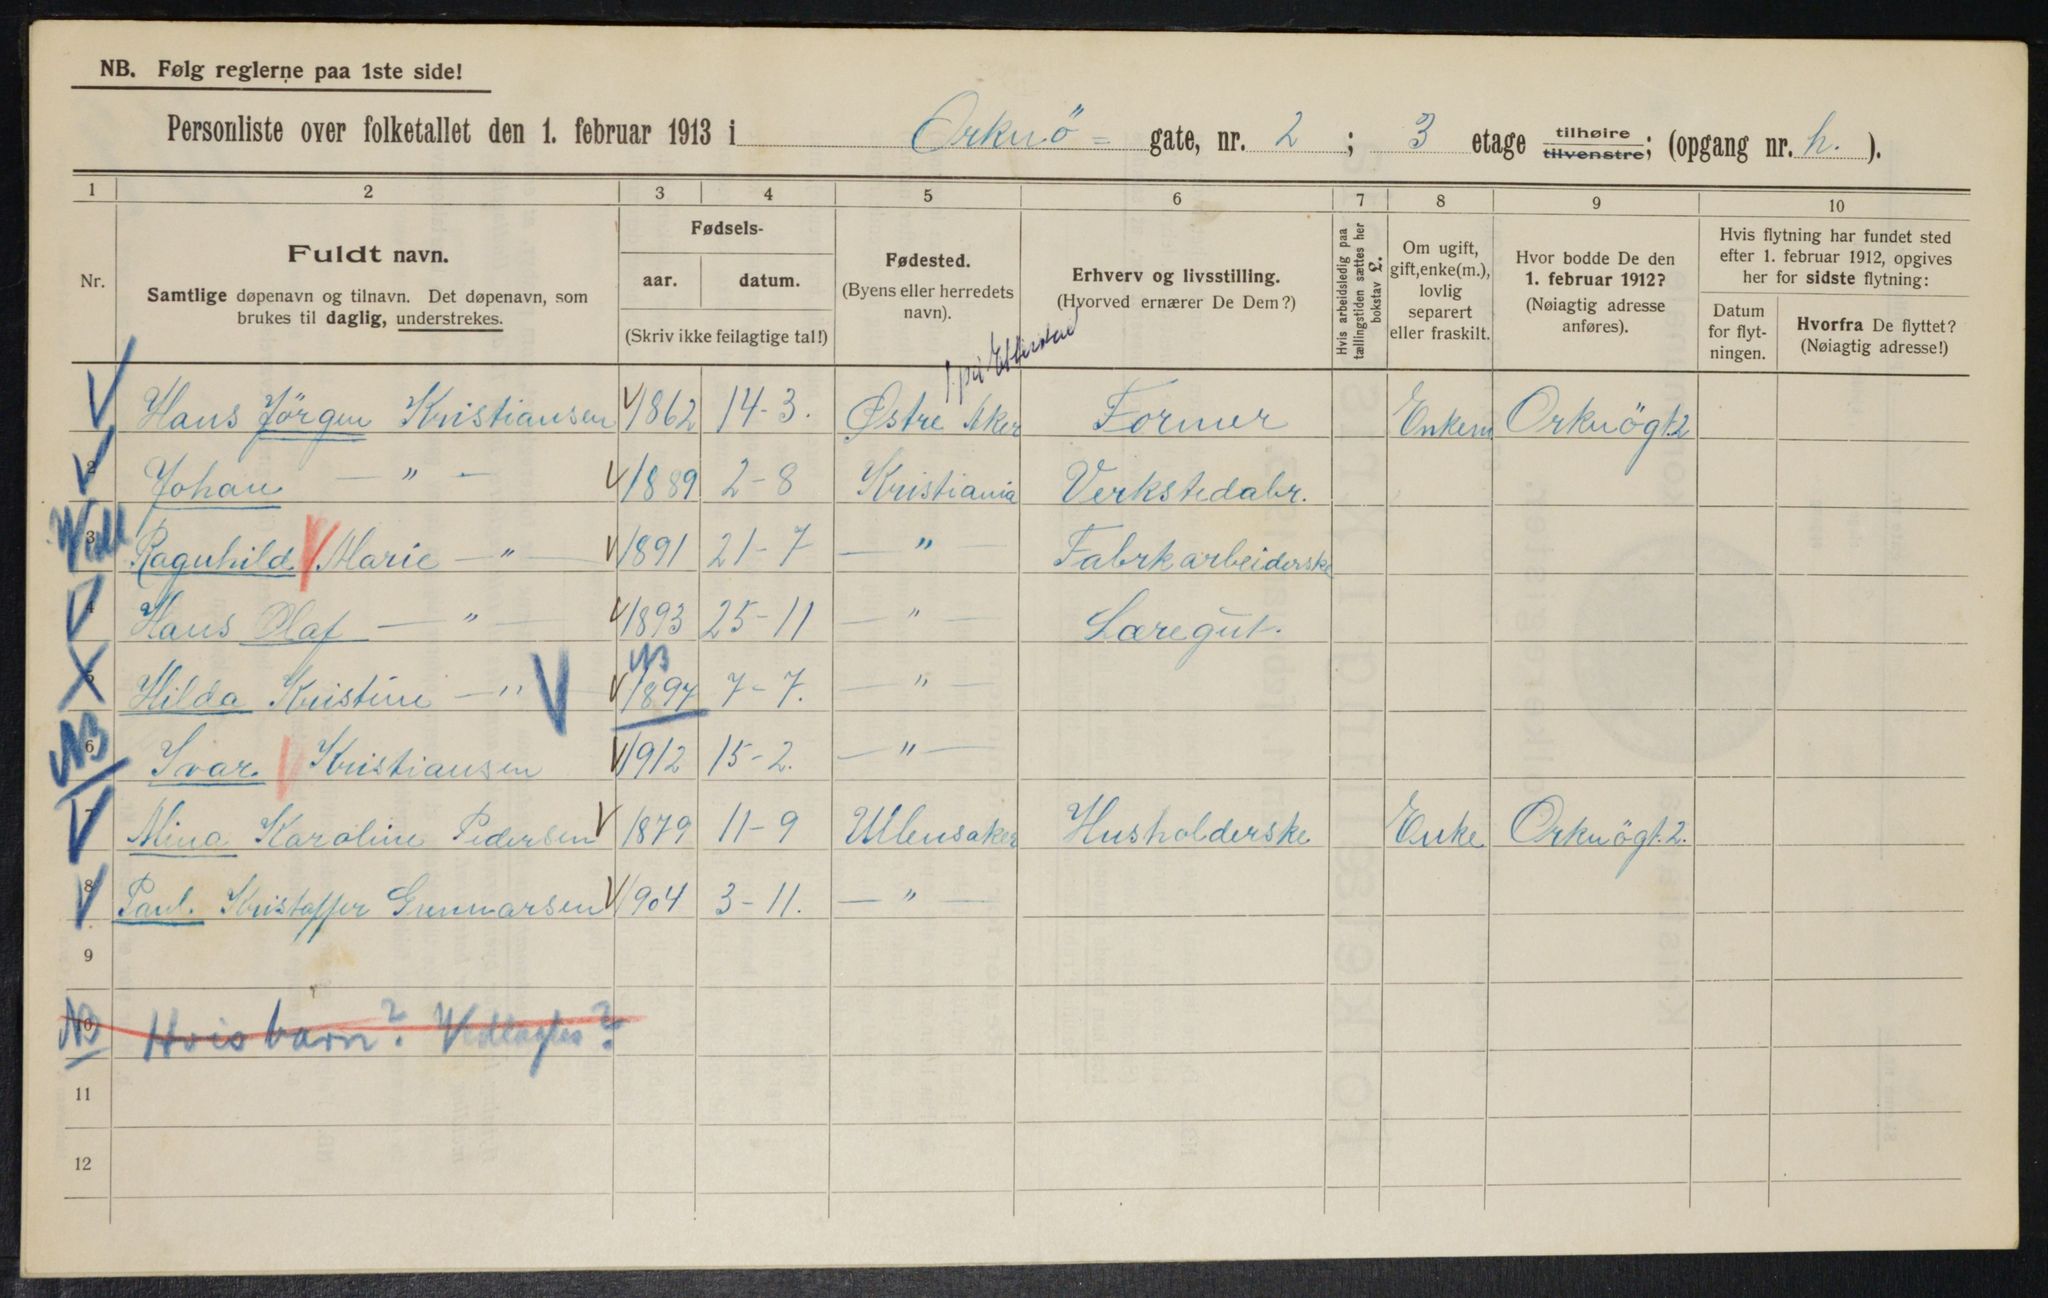 NB. Følg reglerne paa 1ste side!
Personliste over folketallet den 1. februar 1913 i Orknö = gate, nr. 2 ; 3 etage tilhøire tilvenstre; (opgang nr. h. ).
1 2 3 4 5 6 7 8 9 10
Nr.
Fuldt navn.
Samtlige døpenavn og tilnavn. Det døpenavn, som
brukes til daglig, understrekes.
Fødsels-
aar. datum.
(Skriv ikke feilagtige tal!)
Fødested.
(Byens eller herredets
navn).
Erhverv og livsstilling.
(Hvorved ernærer De Dem?)
Hvis arbeidsledig paa
tællingstiden sættes her
bokstav L.
Om ugift,
gift, enke(m.),
lovlig
separert
eller fraskilt.
Hvor bodde De den
1. februar 1912?
(Nøiagtig adresse
anføres).
Hvis flytning har fundet sted
efter 1. februar 1912, opgives
her for sidste flytning:
Datum
for flyt-
ningen.
Hvorfra De flyttet?
(Nøiagtig adresse!)
Hans Jörgen Kristiansen 1862 14-3. Østre Aker Former Enkem Orknögt. 2
2 Johan — " — 1889 2-8 Kristiania Verkstedabr.
3 Ragnhild Marie — " — 1891 21-7 — " — Fabrkarbeiderske
4 Hans Olaf — " — 1893 25-11 — " — Læregut.
NB
5 Hilda Kristine — " — 1897 7-7. — " —
NB 6 Ivar Kristiansen 1912 15-2. — " —
7 Mina Karoline Pedersen 1879 11-9 Ullensaker Husholderske Enke Orknögt. 2.
8 Paul. Kristoffer Gunnarsen 1904 3-11. — " —
9
NB 10 Hvis barn? Vedlagtes?
11
12